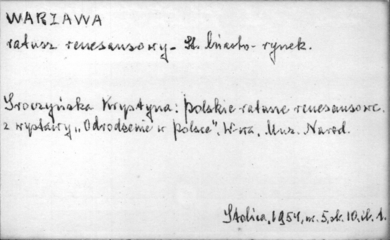 WARSZAWA
ratusz renesansowy - St. Miasto - rynek.
Sroczyńska Krystyna: polskie ratusze renesansowe.
z wystawy "Odrodzenie w Polsce". W-wa, Muz. Narod.
Stolica, 1954, nr. 5, st. 10, il. 1.